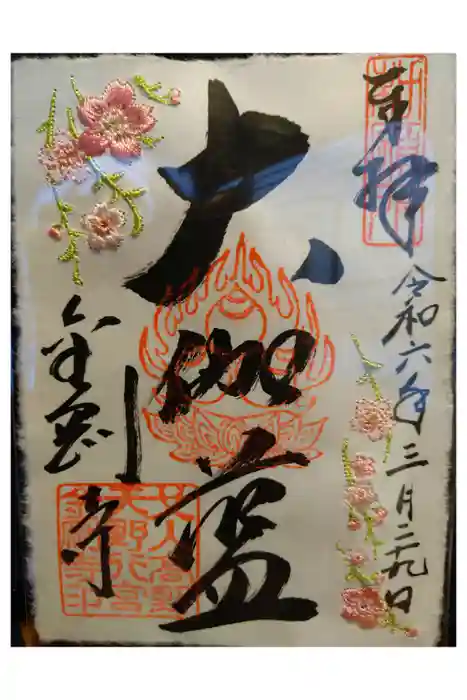 奉拝
令和六年三月二十九日
大伽藍
金剛寺